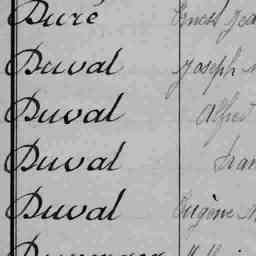 Duré Ernest
Duval Joseph
Duval Alfred
Duval
Duval Eugène